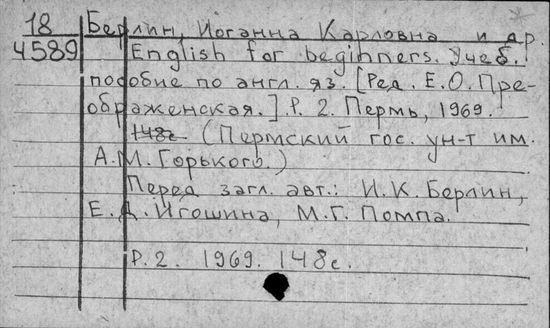 18 Берлин, Иоганна Карловна и др.
4589 English for beginners. Учеб.
пособие по англ. яз. [Ред. Е.О. Пре-
ображенская.] Р. 2. Пермь, 1969.
148с (Пермский гос. ун-т им.
А.М. Горького.)
Перед загл. авт.: И.К. Берлин,
Е.Д. Игошина, М.Г. Помпа.
Р. 2. 1969. 148с.